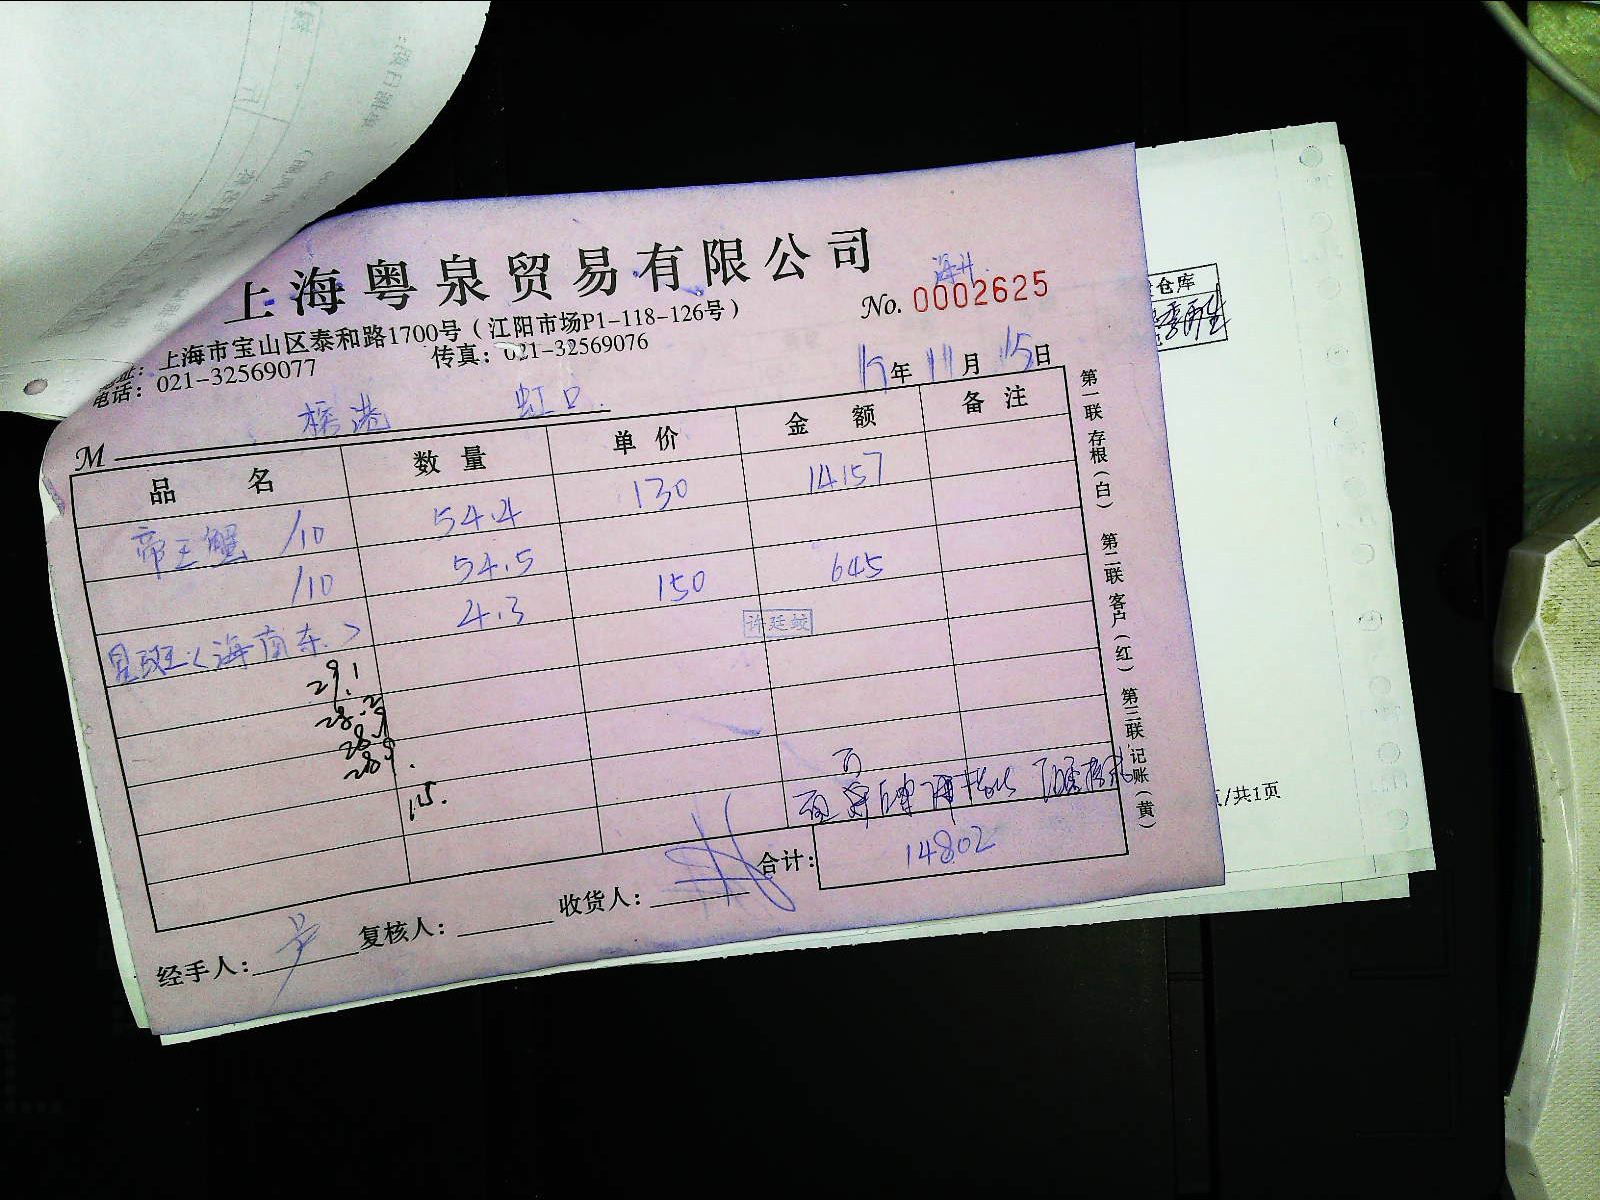 上海粤泉贸易有限公司
海升
No. 0002625
上海市宝山区泰和路1700号（江阳市场P1-118-126号）
电话：021-32569077 传真：021-32569076
19年 11月 15日
虹口
M
品名 数量 单价 金额 备注
帝王蟹 /10 54.4 130 14157
/10 54.5
星斑（海南东） 4.3 150 645
许廷蛟
29.1
28.2
28.9
28.9
15.
合计： 14802
经手人： 复核人： 收货人：
第一联 存根（白） 第二联 客户（红） 第三联 记账（黄）
仓库
/共1页